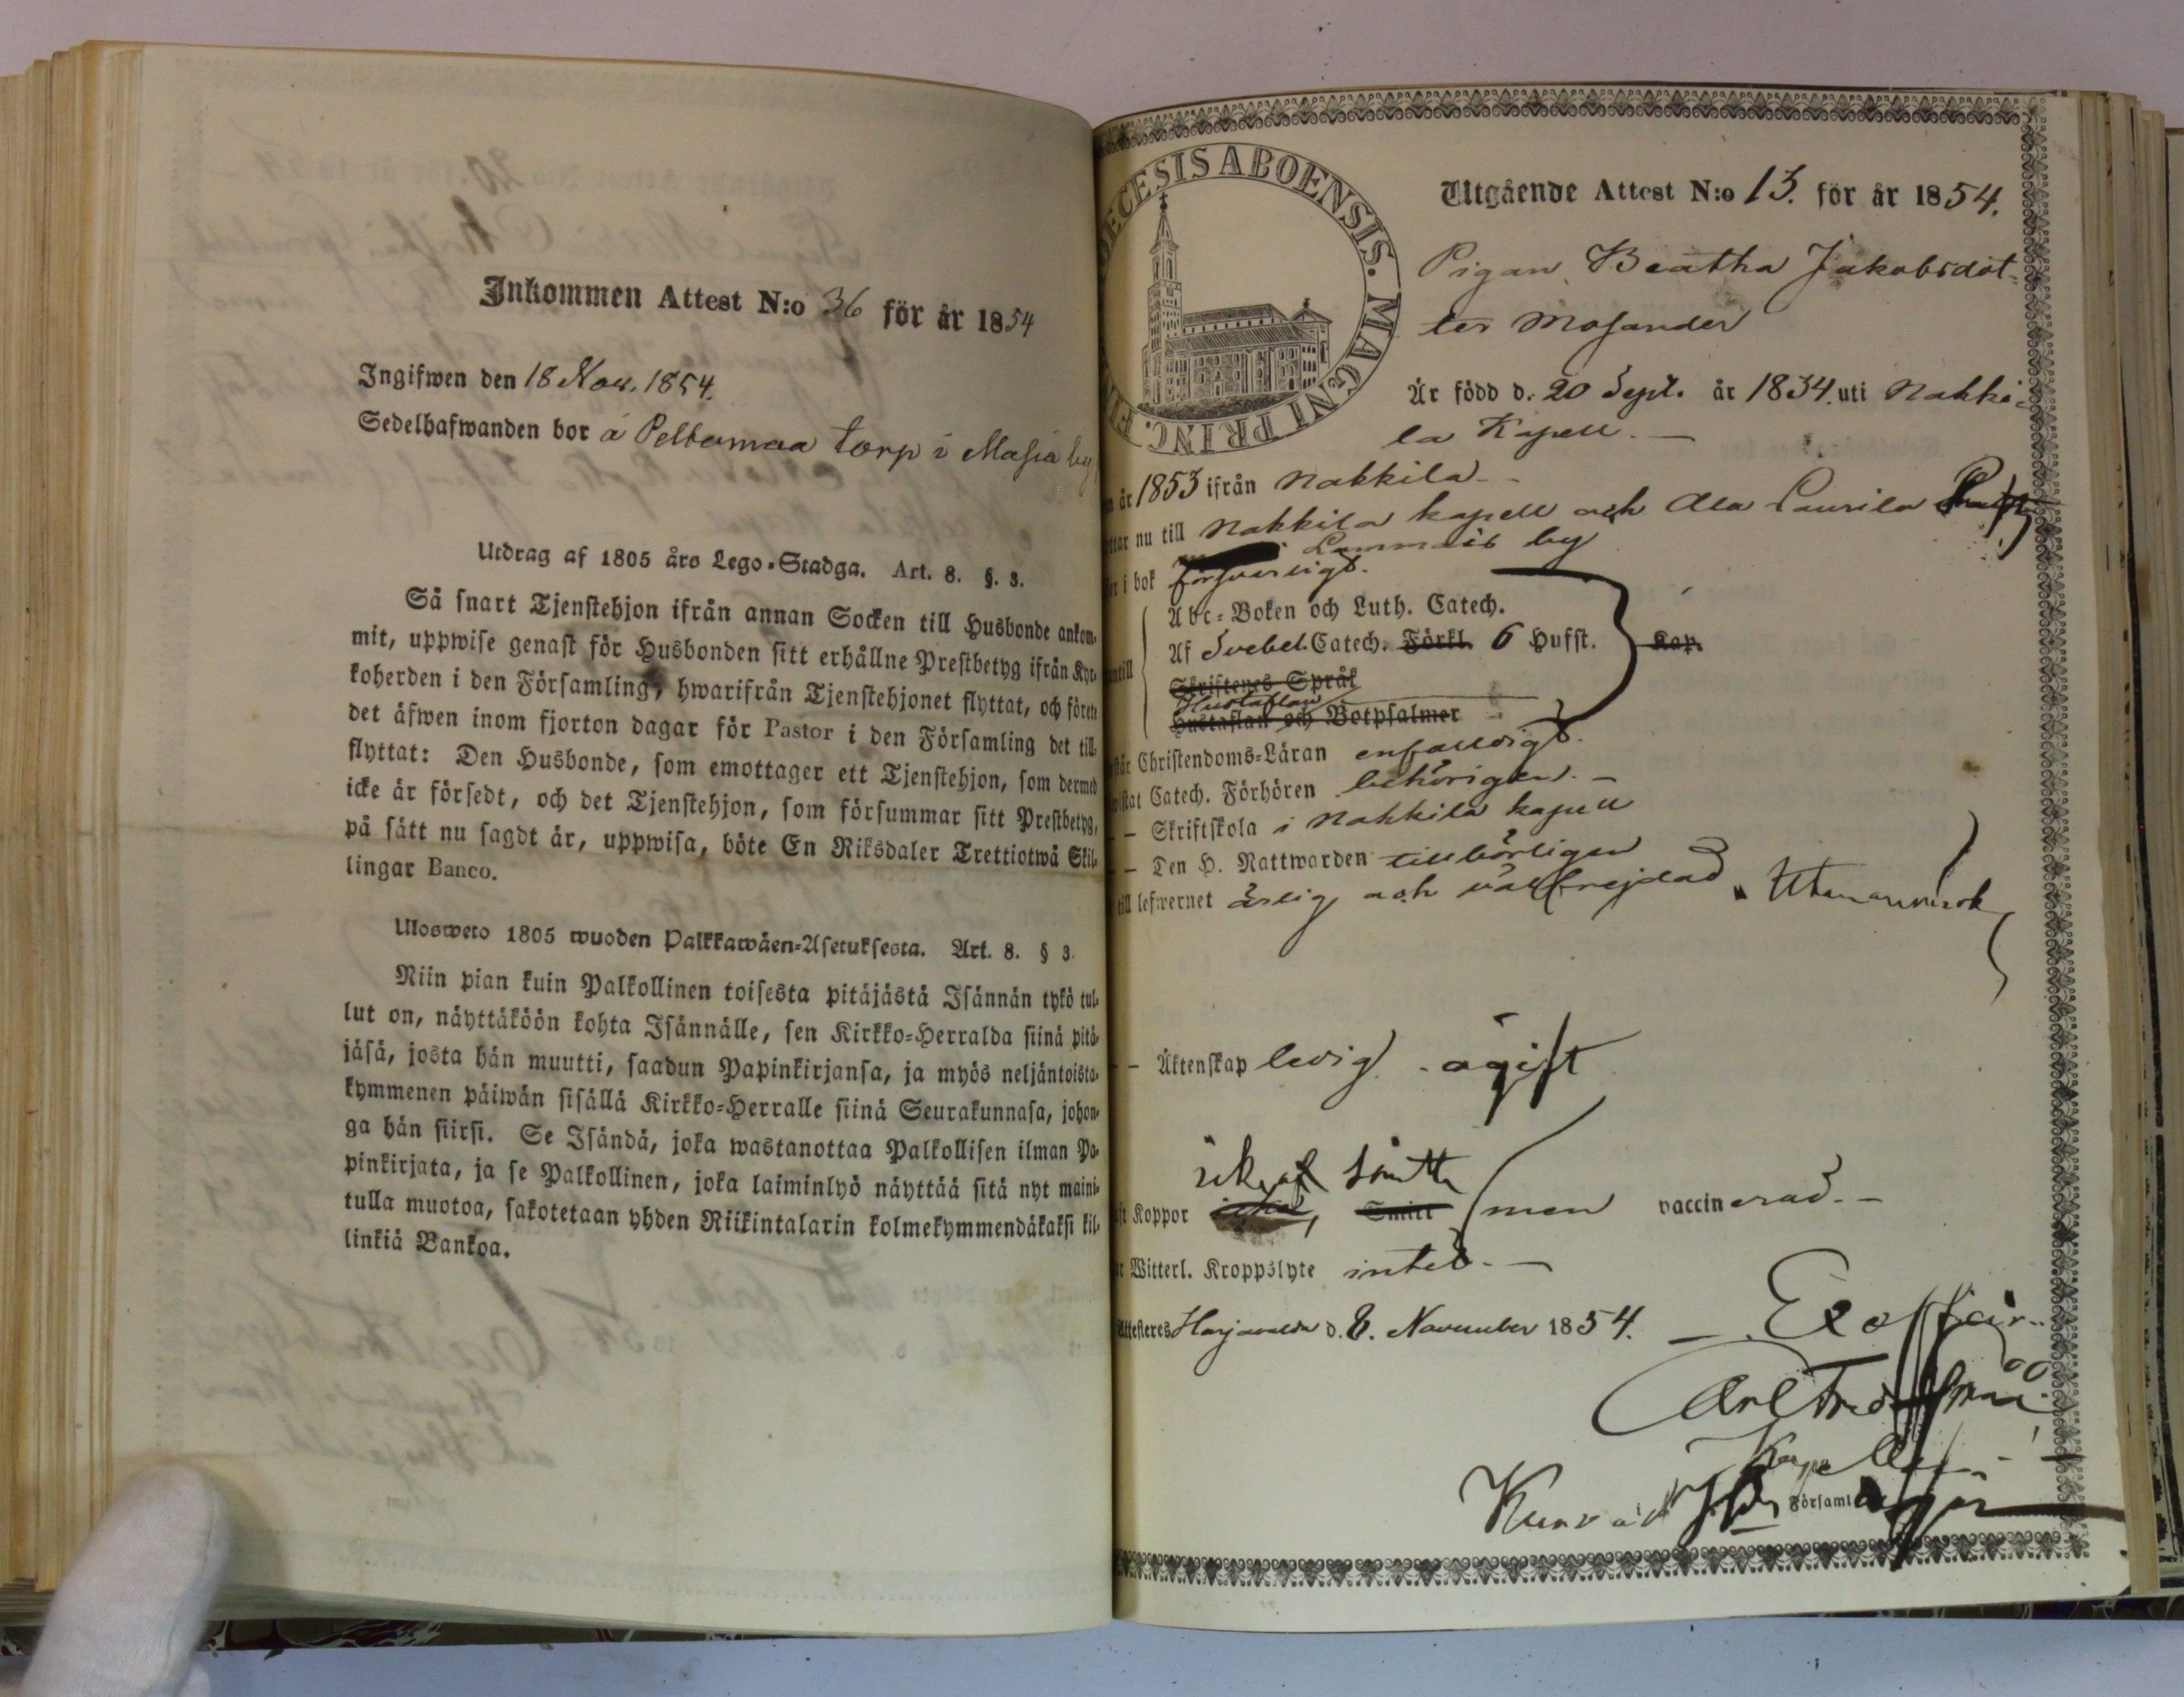 Inkommen Attest N:o 36 för år 1854
Ingifwen den 18 Nov. 1854.
Sedelhafwanden bor å Peltomaa torp i Masia by
Utdrag af 1805 års Lego-Stadga. Art. 8. §. 3.
Så snart Tjenstehjon ifrån annan Socken till Husbonde ankom-
mit, uppwise genast för Husbonden sitt erhållne Prestbetyg ifrån Kyr-
koherden i den Församling, hwarifrån Tjenstehjonet flyttat, och förete
det äfwen inom fjorton dagar för Pastor i den Församling det till-
flyttat: Den Husbonde, som emottager ett Tjenstehjon, som dermed
icke är försedt, och det Tjenstehjon, som försummar sitt Prestbetyg,
på sätt nu sagdt är, uppwisa, böte En Riksdaler Trettiotwå Skil-
lingar Banco.
Ulosweto 1805 wuoden Palkkawäen-Asetuksesta. Art. 8. § 3.
Niin pian kuin Palkollinen toisesta pitäjästä Isännän tykö tul-
lut on, näyttäköön kohta Isännälle, sen Kirkko-Herralda siinä pitä-
jäsä, josta hän muutti, saadun Papinkirjansa, ja myös neljäntoista-
kymmenen päiwän sisällä Kirkko-Herralle siinä Seurakunnasa, johon-
ga hän siirsi. Se Isändä, joka wastanottaa Palkollisen ilman Pa-
pinkirjata, ja se Palkollinen, joka laiminlyö näyttää sitä nyt maini-
tulla muotoa, sakotetaan yhden Riikintalarin kolmekymmendäkaksi kil-
linkiä Bankoa.
ECESIS ABOENSIS. MAGNI PRINC. F
Utgående Attest N:o 13. för år 1854.
Pigan Beatha Jakobsdot-
ter Mosander
Är född d. 20 Sept. år 1834. uti Nakki-
la Kapell. —
år 1853 ifrån Nakkila -
ttar nu till Nakkila kapell och Ala Laurila
Lammais by
er i bok försvarligt.
Abc-Boken och Luth. Catech.
Af Svebel. Catech. Förkl. 6 Hufst. Kap.
Skriftenes Språk
Hustaflan
Hustaflan och Botpsalmer
står Christendoms-Läran enfaldigt.
wistat Catech. Förhören behörigen. —
— Skriftskola i Nakkila kapell
— Den H. Nattwarden tillbörligen
till lefwernet ärlig och välfrejdad. Utan anmärk
— Äktenskap ledig. - ogift
Koppor Smitt men vaccinerad. —
Witterl. Kroppslyte intet. —
Attesteras Harjavalta d. 8. November 1854. — Ex officio.
Carl
Kapell
i Församl